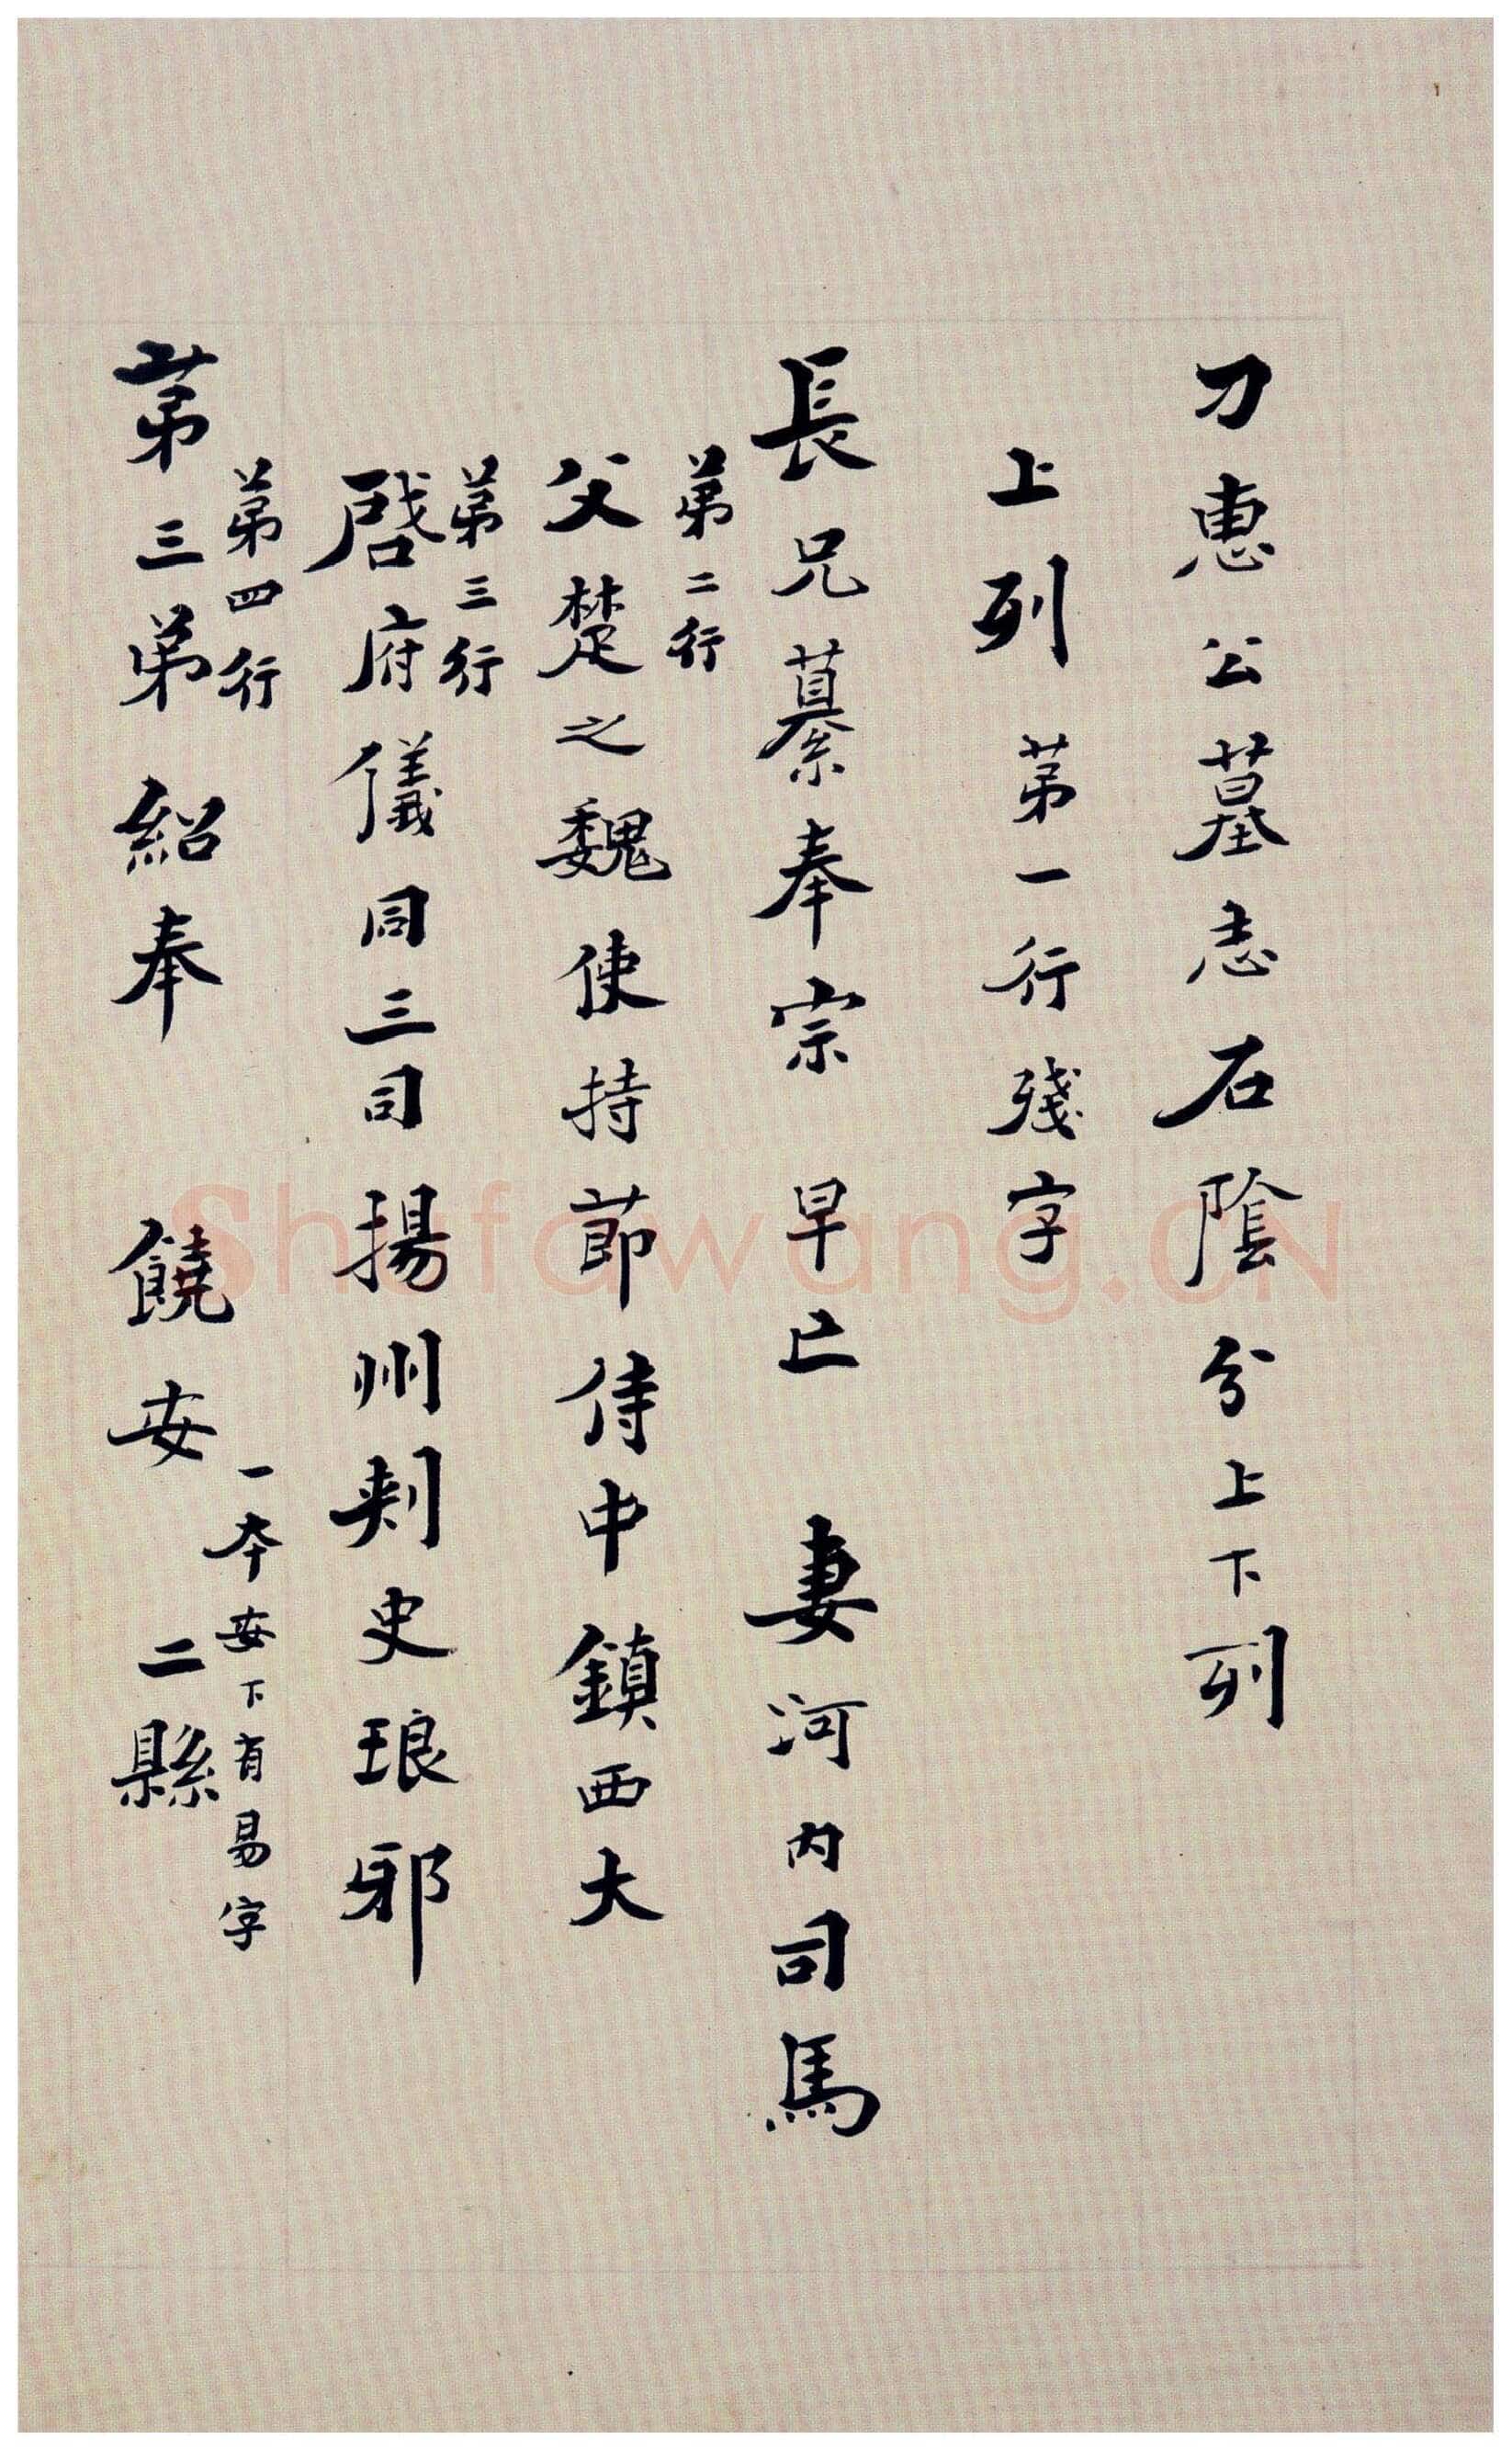 刀惠公墓志石陰分上下列
上列 第一行殘字
長兄纂奉宗 早亡 妻河內司馬
第二行
父楚之魏使持節侍中鎮西大
第三行
啓府儀同三司揚州刺史琅邪
第四行
第三弟紹奉 饒安 二縣
一本安下有易字
Shufawang.CN